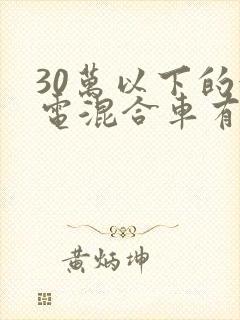 30萬以下的
電混合車有
黃炳坤